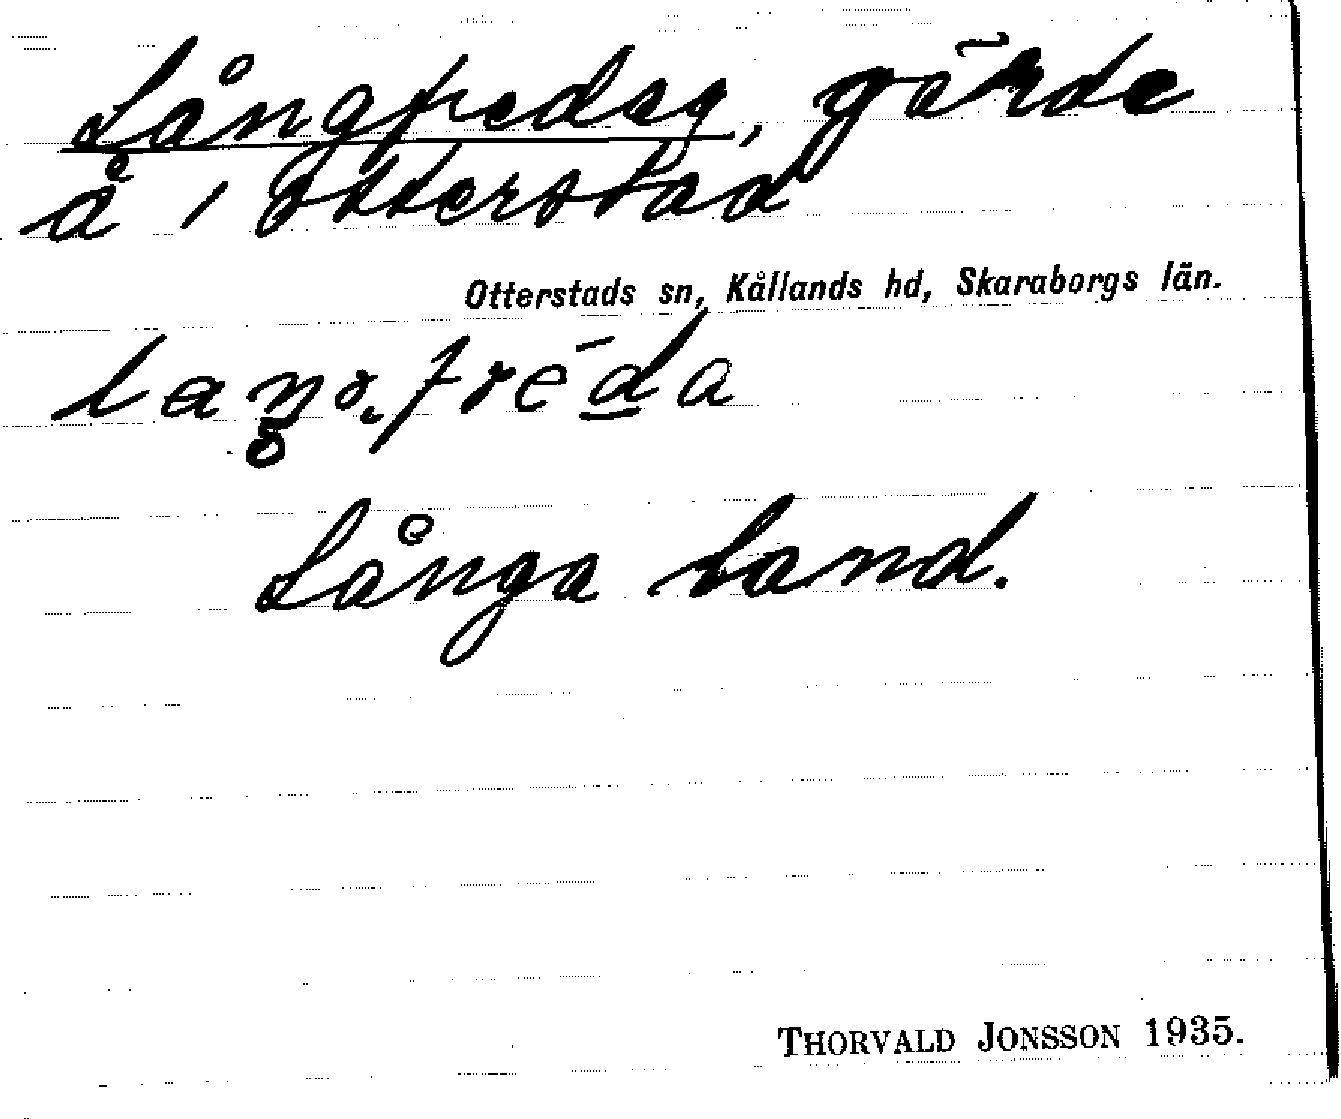 Långfredag, gärde
å 1 Otterstad
Otterstads sn, Kållands hd, Skaraborgs län.
Långa land.
THORVALD JONSSON 1935.